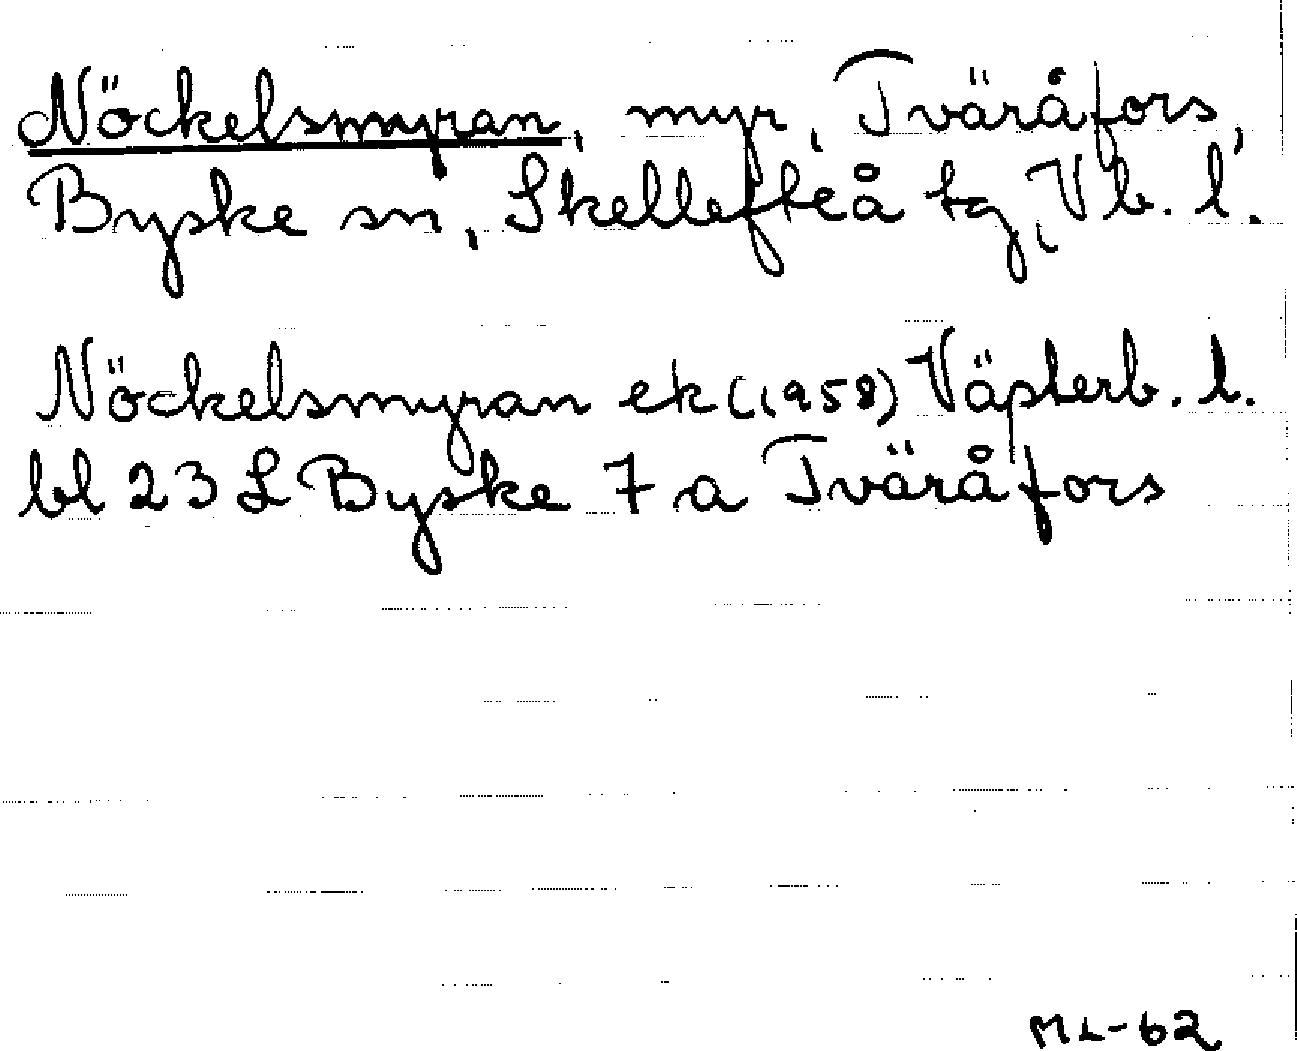 Nöckelsmyran, myr, Tväråfors,
Byske sn, Skellefteå tg, Vb. l.
Nöckelsmyran ek (1958) Västerb. l.
bl 23 L Byske 7 a Tväråfors
ML-62